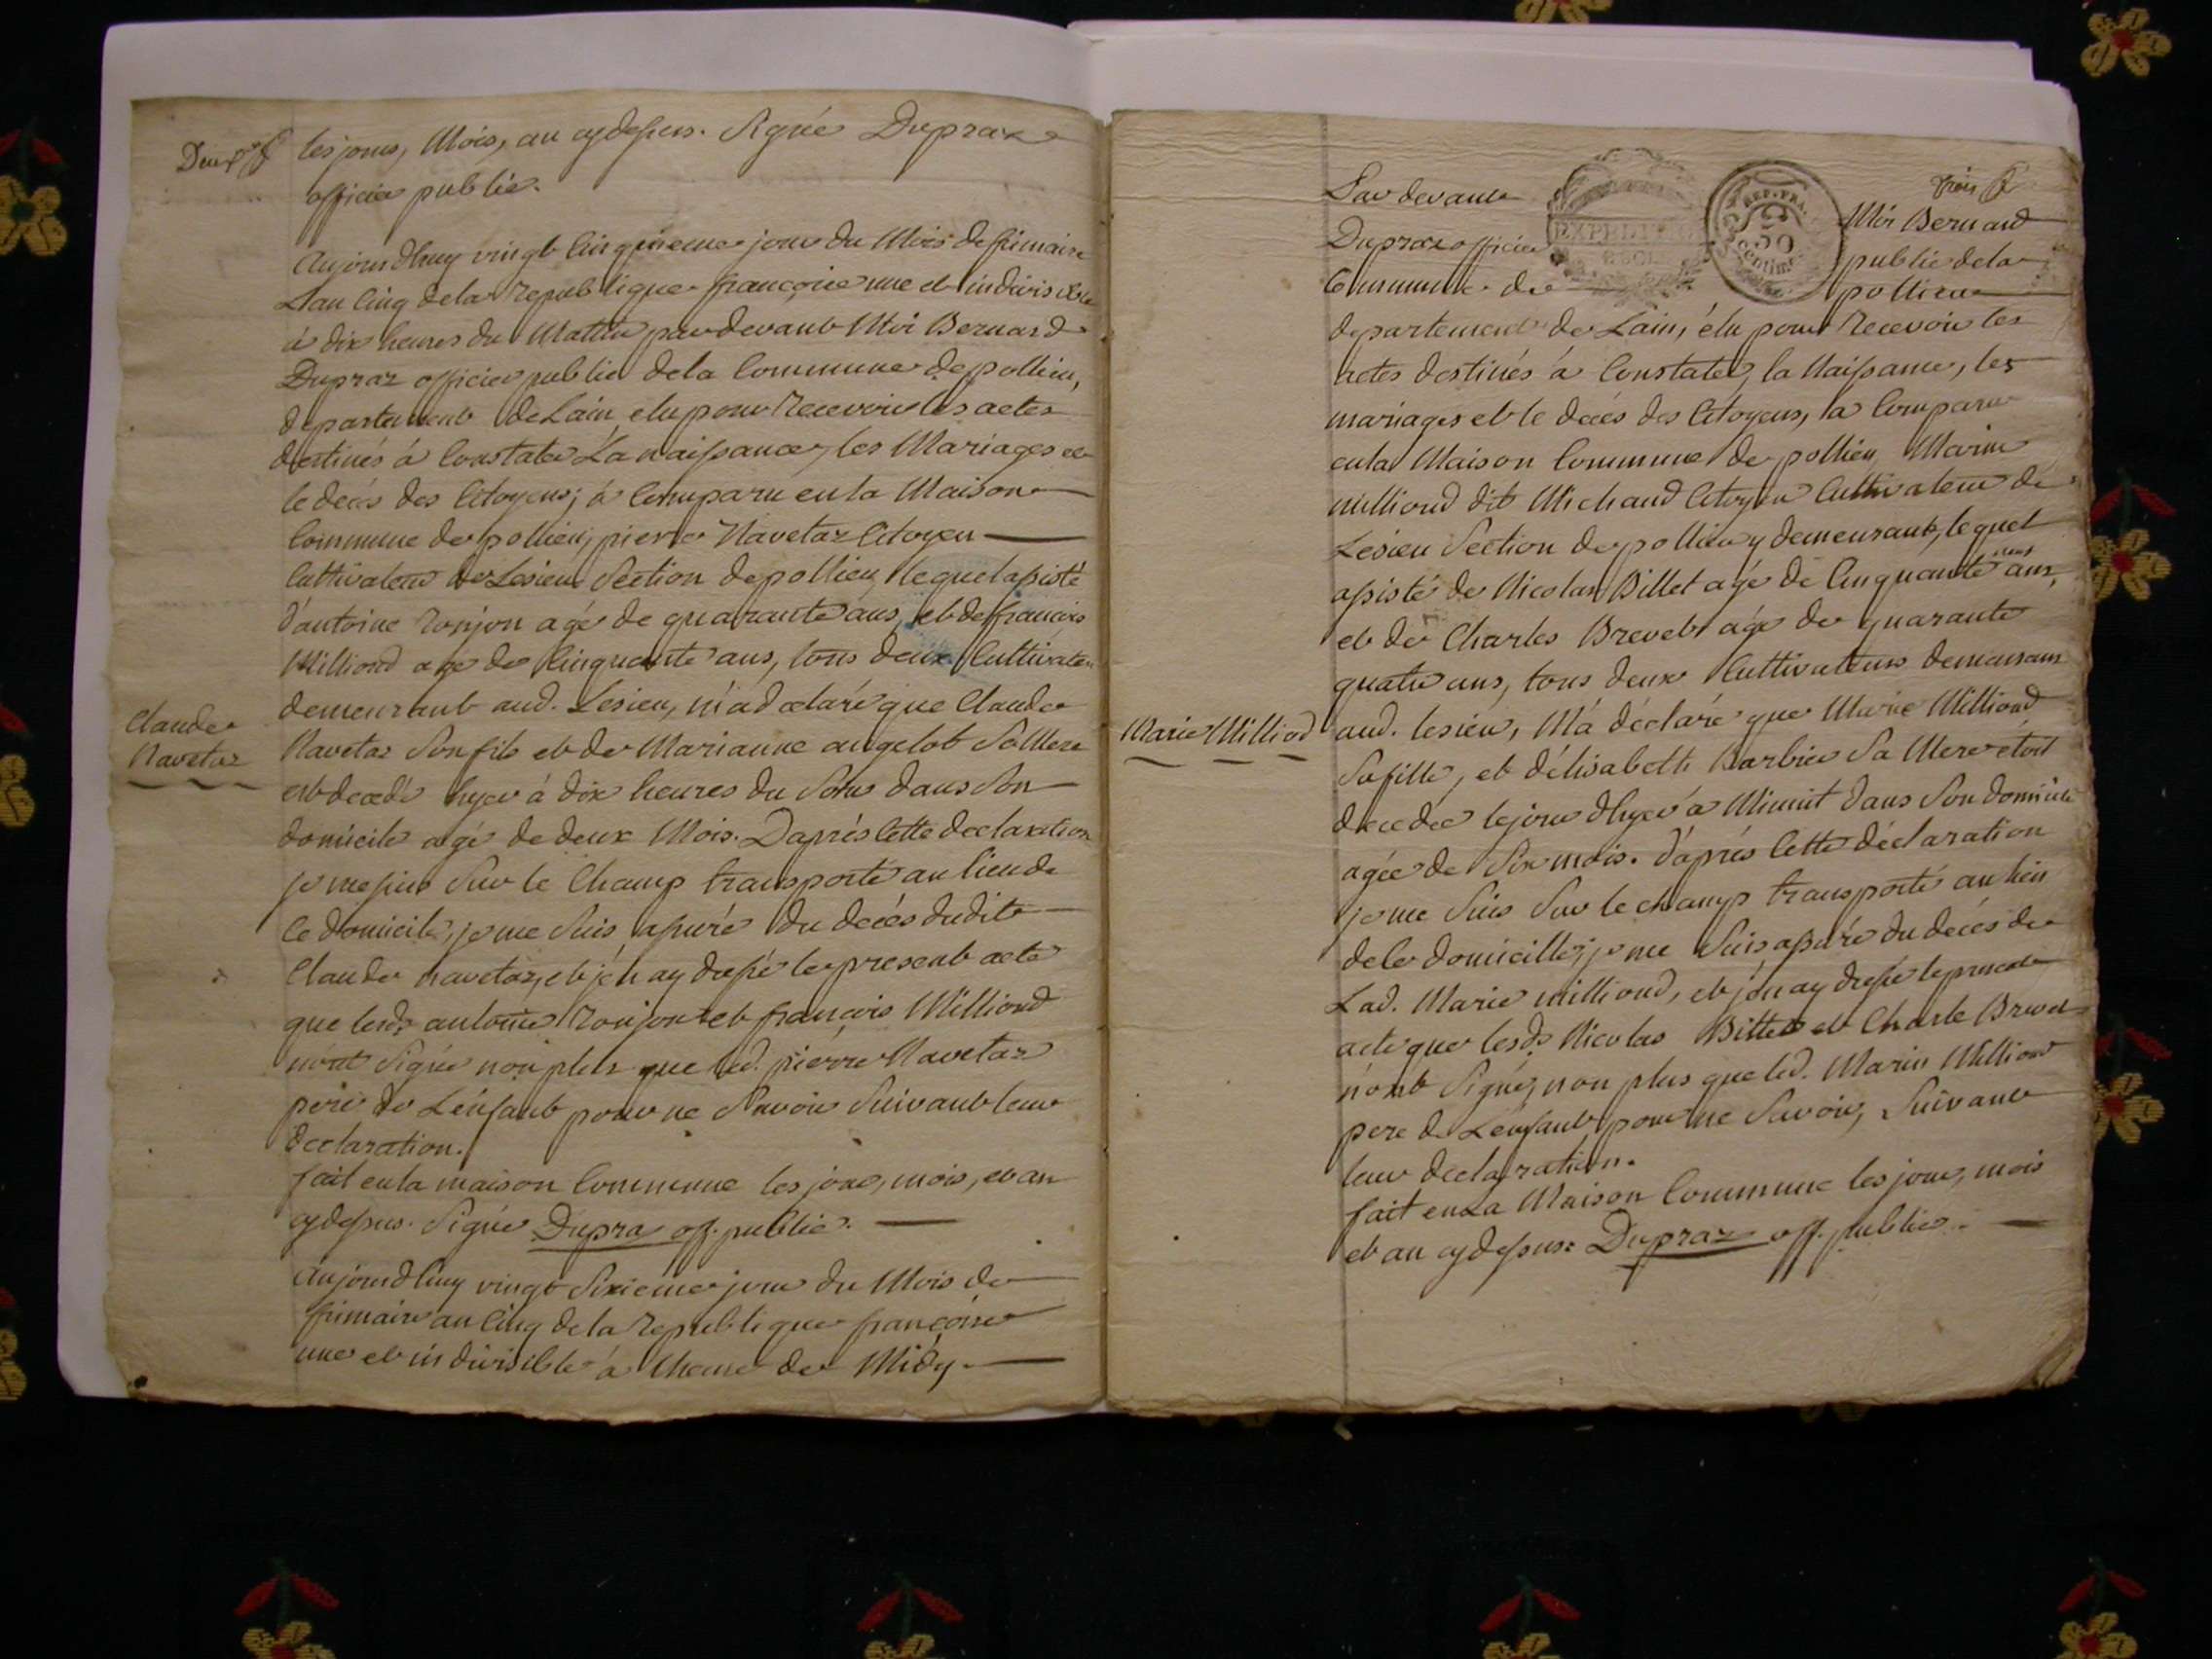 Deux
les jours, Mois, an cydessus. Signée Dupraz
officier public.
Aujourdhuy vingt Cinquieme jour du Mois de frimaire
L'an Cinq de la Republique françoise une et indivisible
à dix heures du Mattin pardevant Moi Bernard
Dupraz officier public de la Commune de pollieu,
departement de Lain, elu pour Recevoir les actes
destinés à Constater La naissance, les Mariages et
le decés des Citoyens; à Comparu en la Maison
Commune de pollieu, pierre Navetaz Citoyen
Cultivateur de Lesieu Section de pollieu, lequel assisté
d'antoine Ronjon agé de quarante ans, et de françois
Milliond agé de Cinquante ans, tous deux Cultivateurs
demeurant aud. Lesieu, m'a déclaré que Claude
Claude
Navetaz
Navetaz Son fils et de Marianne angelot Sa Mere
est decedé hyer à dix heures du Soir dans Son
domicile agé de deux Mois. D'aprés Cette declaration
je me suis Sur le Champ transporté au lieu de
Ce domicile, je me Suis assuré du decés dudit
Claude navetaz, et j'en ay dressé le present acte
que lesd. antoine Ronjon et françois Milliond
n'ont Signé non plus que led. pierre Navetaz
pere de L'enfant pour ne Savoir Suivant leur
declaration.
fait en la maison Commune les jour, mois, et an
cydessus. Signée Dupraz off. public.
Aujourdhuy vingt Sixieme jour du Mois de
frimaire an Cinq de la Republique françoise
une et indivisible à l'heure de Midy
trois
Par devant Moi Bernard
Dupraz officier public de la
Commune de pollieu
REP. FRA.
50
Centimes
departement de Lain, élu pour Recevoir les
actes destinés à Constater, la Naissance, les
mariages et le decés des Citoyens, a Comparu
en la Maison Commune de pollieu Marin
milliond dit Michaud Citoyen Cultivateur de
Lesieu Section de pollieu y demeurant, lequel
assisté de Nicolas Billet agé de Cinquante ans,
et de Charles Brevet agé de quarante
quatre ans, tous deux Cultivateurs demeurans
Marie Milliod
aud. lesieu, M'a déclaré que Marie Milliond
Sa fille, et d'élisabeth Barbier Sa Mere étoit
decedée le jour d'hyer à Minuit dans Son domicile
agée de Six mois. d'aprés Cette déclaration
je me Suis Sur le champ transporté au lieu
de Ce domicille, je me Suis assuré du decés de
Lad. Marie milliond, et j'en ay dressé le present
acte que lesd. Nicolas Billet et Charle Brevet
n'ont Signé, non plus que led. Marin Milliond
pere de L'enfant, pour ne Savoir, Suivant
leur declaration.
fait en La Maison Commune les jour, mois
et an cydessus: Dupraz off. public.